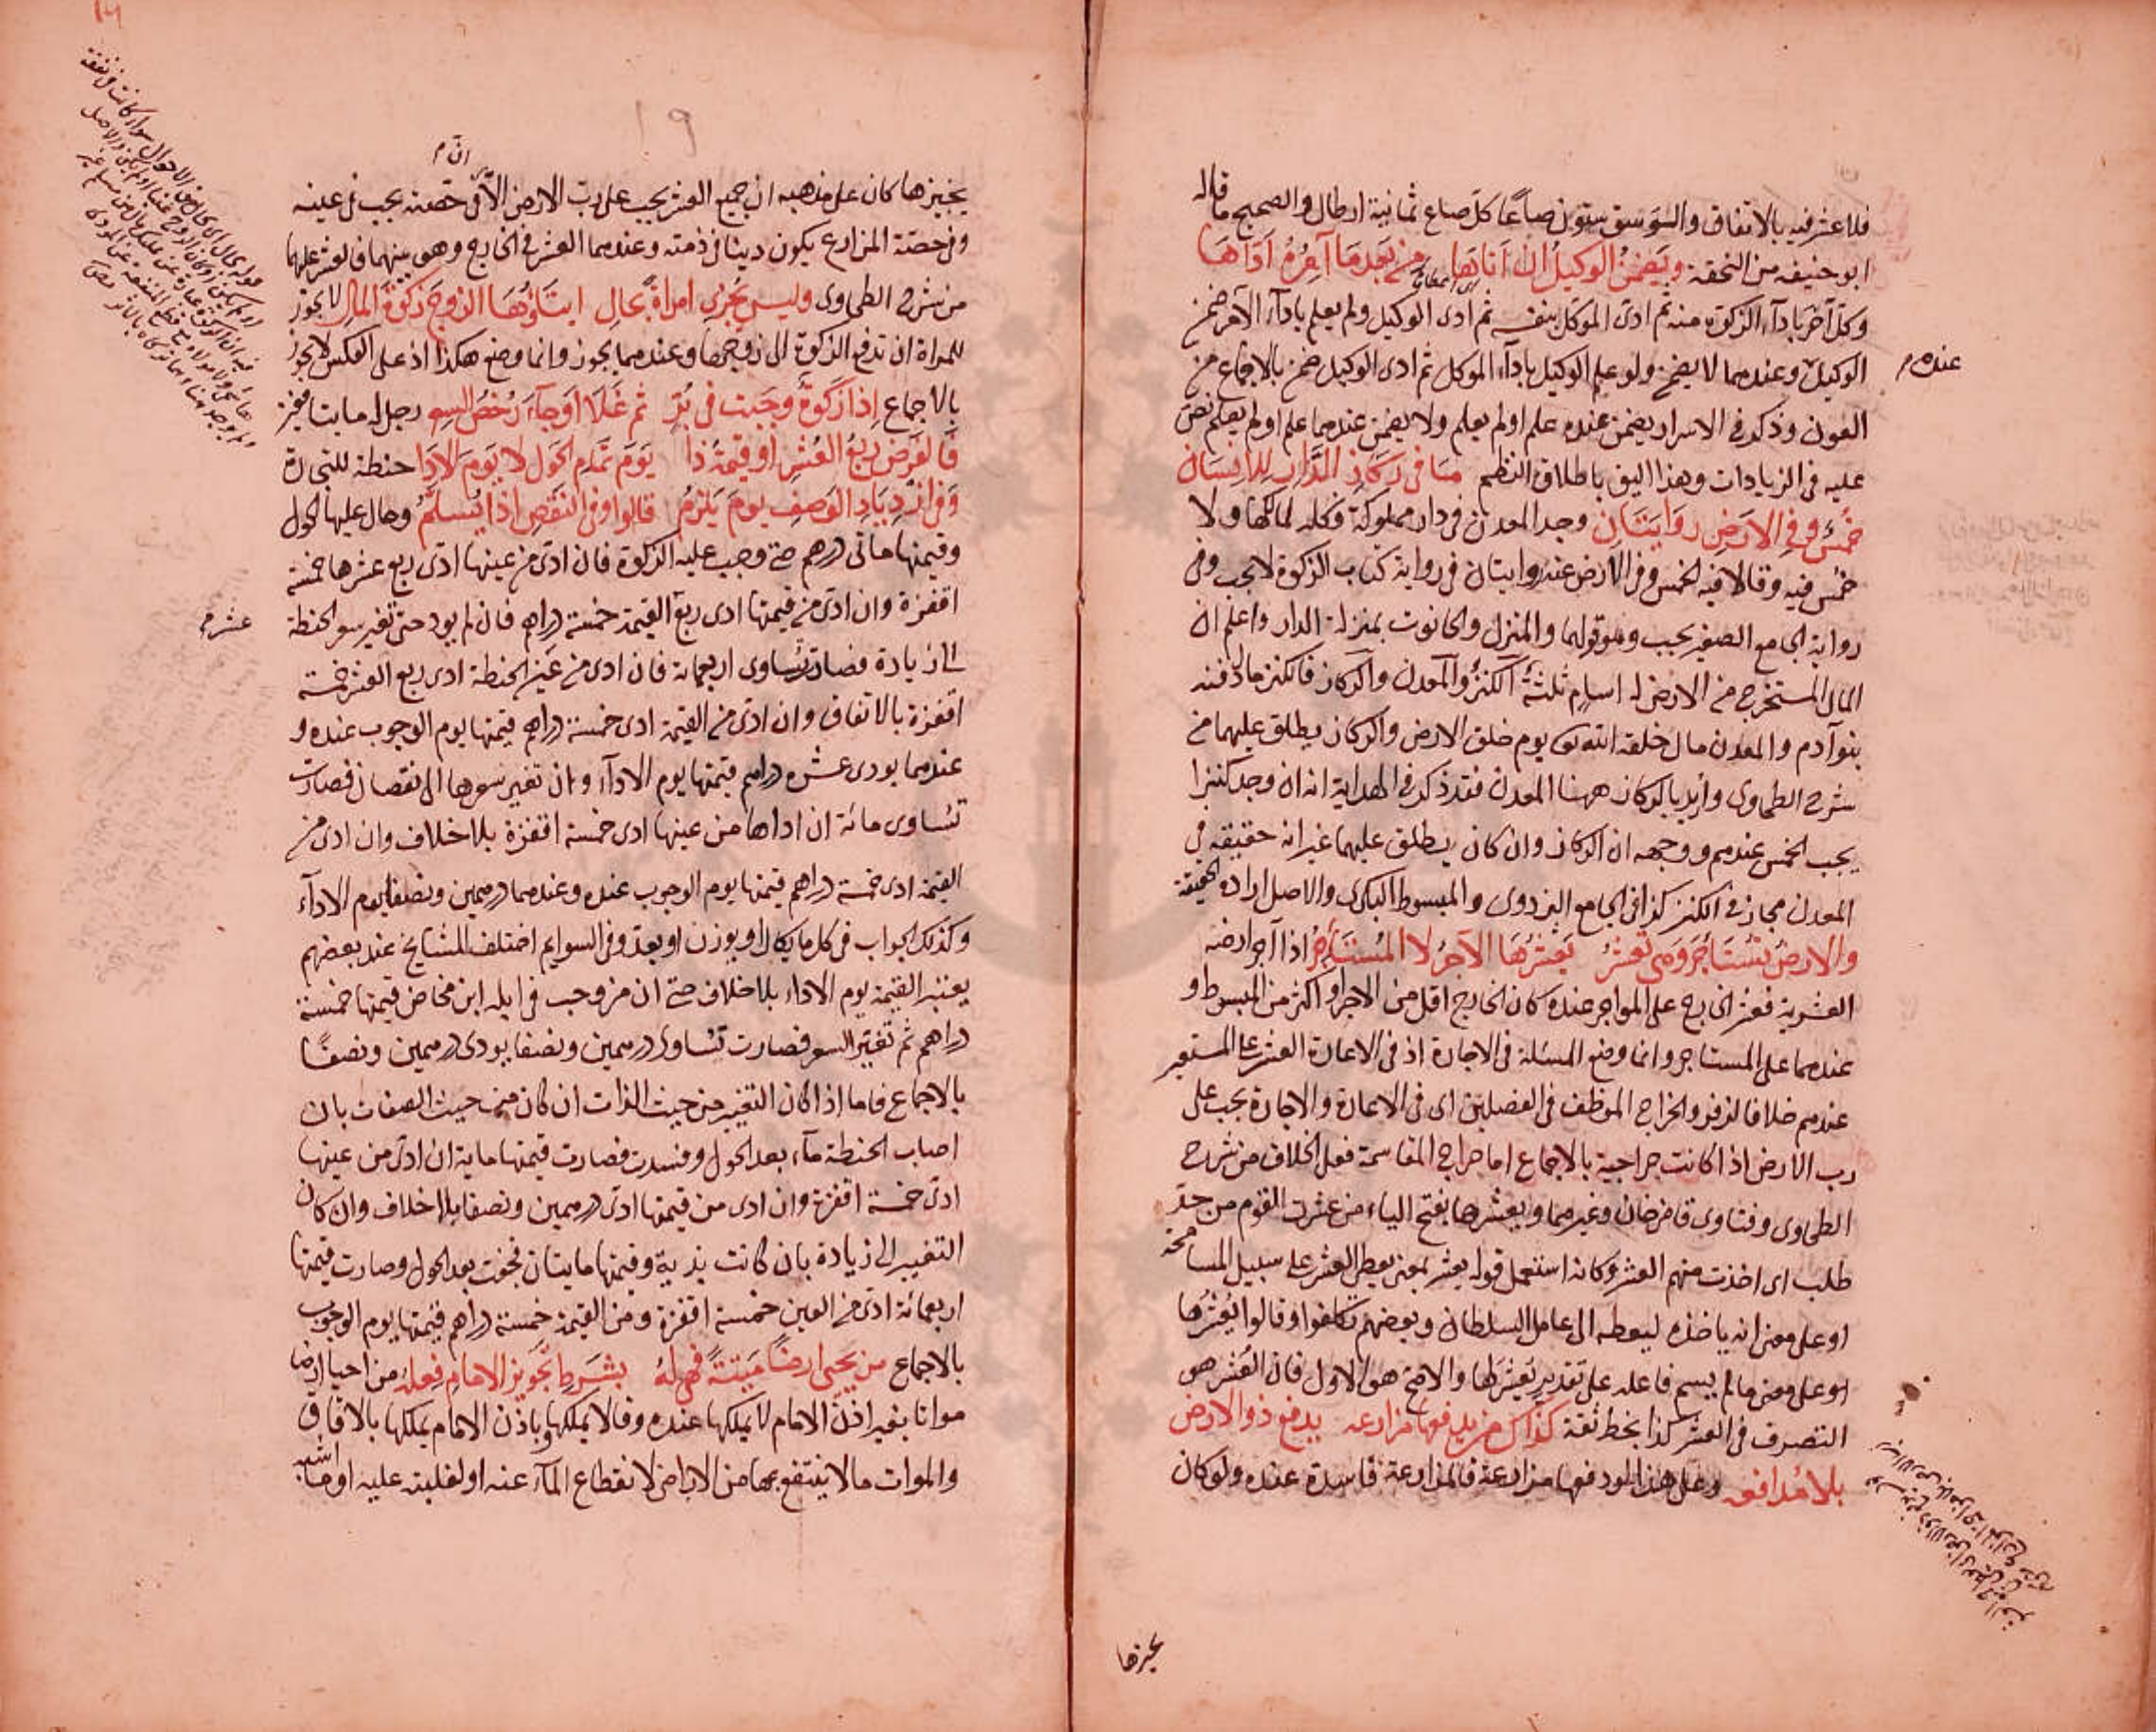 فلا عشر فيه بالاتفاق والوسق ستون صاعا كل صاع ثمانية ارطال والصحيح ما قاله
ابو حنيفه من التحفة ويضمن الوكيل ان اتا بها من بعد ما آمره اداها
وكل آخر باداء الزكوة منه ثم ادى الموكل بنفسه ثم ادى الوكيل ولم يعلم باداء الآمر ضمن
الوكيل وعندهما لا يضمن ولو علم الوكيل باداء الموكل ثم ادى الوكيل ضمن بالاجماع من
عنده م
العون وذكر في الاسرار يضمن عنده علم او لم يعلم ولا يضمن عندهما علم او لم يعلم نص
عليه في الزيادات وهذا اليق باطلاق النظم ما في ركاز الدار للانسان
خمس وفي الارض روايتان وجد المعدن في دار مملوكة فكله لمالكها ولا
خمس فيه وقالا فيه الخمس وفي الارض عنده روايتان في رواية كتاب الزكوة لا يجب وفي
رواية الجامع الصغير يجب وهو قولهما والمنزل والحانوت بمنزلة الدار واعلم ان
المال المستخرج من الارض له اسام ثلثة الكنز والمعدن والركاز فالكنز ما دفنه
بنو آدم والمعدن مال خلقه الله تعالى يوم خلق الارض والركاز يطلق عليهما من
شرح الطحاوى واريد بالركاز ههنا المعدن فقد ذكر في الهداية انه ان وجد كنزا
يجب الخمس عندهم ووجهه ان الركاز وان كان يطلق عليهما غير انه حقيقة في
المعدن مجاز في الكنز كذا في الجامع البزدوى والمبسوط البكرى والاصل ارادة الحقيقة
والارض تستاجر وهى تعشر يعشرها الآجر لا المستأجر اذا آجر ارضه
العشرية فعشر الخارج على المواجر عنده كان الخارج اقل من الاجر او اكثر من المبسوط و
عندهما على المستاجر وانما وضع المسئلة في الاجارة اذ في الاعارة العشر على المستعير
عندهم خلافا لزفر والخراج الموظف في الفصلين اى في الاعارة والاجارة يجب على
رب الارض اذا كانت خراجية بالاجماع اما خراج المقاسمة فعلى الخلاف من شرح
الطحاوى وفتاوى قاضى خان وغيرهما ويعشرها بفتح الياء من عشرت القوم من حد
طلب اى اخذت منهم العشر وكانه استعمل قوله يعشر بمعنى يعطى العشر على سبيل المسامحة
او على معنى انه ياخذه ليعطيه الى عامل السلطان وبعضهم تكلفوا وقالوا يعشرها
او على معنى ما لم يسم فاعله على تقدير يعشرها والاصح هو الاول فان العشر هو
التصرف في العشر كذا بخط ثقة كذاك من يدفعها مزارعه يدفع ذو الارض
بلا مدافعه وعلى هذا لو دفعها مزارعة فالمزارعة فاسدة عنده ولو كان
يجيزها
يجيزها كان على مذهبه ان جميع العشر يجب على رب الارض الا ان في حصته يجب في عينه
وفي حصة المزارع يكون دينا في ذمته وعندهما العشر في الخارج وهو بينهما فالعشر عليهما
من شرح الطحاوى وليس يجزى امراة بحال ايتاؤها الزوج زكوة المال لا يجوز
للمراة ان تدفع الزكوة الى زوجها وعندهما يجوز وانما وضع هكذا اذ على العكس لا يجوز
بالاجماع اذا زكوة وجبت في بر ثم غلا او جاء رخص السعر رجل له مايتا قفيز
فالفرض ربع العشر او قيمة ذا يوم تمام الحول لا يوم الادا حنطة للتجارة
وفي ازدياد الوصف يوم يلزم قالوا وفي النقص اذا يسلم وحال عليها الحول
وقيمتها مائتى درهم حتى وجب عليه الزكوة فان ادى من عينها ادى ربع عشرها خمسة
اقفزة وان ادى من قيمتها ادى ربع القيمة خمسة دراهم فان لم يود حتى تغير سعر الحنطة
عشر م
الى زيادة فصارت تساوى اربعمائة فان ادى من عين الحنطة ادى ربع العشر خمسة
اقفزة بالاتفاق وان ادى من القيمة ادى خمسة دراهم قيمتها يوم الوجوب عنده و
عندهما يودى عشرة دراهم قيمتها يوم الاداء وان تغير سعرها الى نقصان فصارت
تساوى مائة ان اداها من عينها ادى خمسة اقفزة بلا خلاف وان ادى من
القيمة ادى خمسة دراهم قيمتها يوم الوجوب عنده وعندهما درهمين ونصفا يوم الاداء
وكذلك الجواب في كل ما يكال او يوزن او يعد وفي السوايم اختلف المشايخ عند بعضهم
يعتبر القيمة يوم الاداء بلا خلاف حتى ان من وجب في ابله ابن مخاض قيمتها خمسة
دراهم ثم تغير السعر فصارت تساوى درهمين ونصفا يودى درهمين ونصفا
بالاجماع فاما اذا كان التغير من حيث الذات ان كان من حيث الصفات بان
اصاب الحنطة ماء بعد الحول وفسدت فصارت قيمتها ماية ان ادى من عينها
ادى خمسة اقفزة وان ادى من قيمتها ادى درهمين ونصفا بلا خلاف وان كان
التغيير الى زيادة بان كانت ندية وقيمتها مايتان فجفت بعد الحول وصارت قيمتها
اربعمائة ادى من العين خمسة اقفزة ومن القيمة خمسة دراهم قيمتها يوم الوجوب
بالاجماع من يحيى ارضا ميتة فهى له بشرط تجويز الامام فعله من احيا ارضا
مواتا بغير اذن الامام لا يملكها عنده وقالا يملكها وباذن الامام يملكها بالاتفاق
والموات ما لا ينتفع بها من الاراضى لانقطاع الماء عنه او لغلبته عليه او ما اشبه